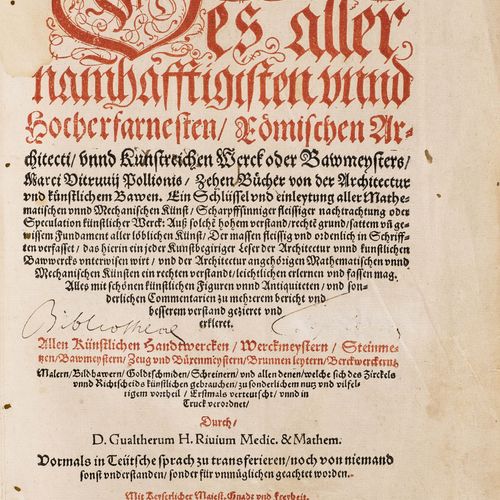 Des aller
namhafftigisten vnnd
Hocherfarnesten/ Römischen Ar-
chitecti/ vnnd Kunstreichen Werck oder Bawmeysters/
Marci Vitruuij Pollionis/ Zehen Bücher von der Architectur
vnd künstlichem Bawen. Ein Schlüssel vnd einleytung aller Mathe-
matischen vnnd Mechanischen Künst/ Scharpffsinniger fleissiger nachtrachtung oder
Speculation künstlicher Werck: Auß solchē hohem verstand/ rechtē grund/ sattem vn̄ ge-
wissem Fundament aller löblichen Künst/ Der massen fleissig vnd ordenlich in Schriff-
ten verfasset/ das hierin ein jeder Kunstbegiriger Leser der Architectur vnnd künstlichen
Bawwercks vnterwisen wirt/ vnd der Architectur angehörigen Mathematischen vnnd
Mechanischen Künsten ein rechten verstand/ leichtlichen erlernen vnd fassen mag.
Alles mit schönen künstlichen Figuren vnnd Antiquiteten/ vnd son-
derlichen Commentarien zu mehrerem bericht vnd
besserem verstand gezieret vnd
erkleret.
Bibliothecæ
Allen Künstlichen Handtwercken/ Werckmeystern/ Steinme-
tzen/ Bawmeystern/ Zeug vnd Büxenmeystern/ Brunnen leytern/ Berckwerckern/
Malern/ Bildhawern/ Goldtschmiden/ Schreinern/ vnd allen denen/ welche sich des Zirckels
vnnd Richtscheids künstlichen gebrauchen/ zu sonderlichem nutz vnd vilfel-
tigem vortheil/ Erstmals verteutscht/ vnnd in
Truck verordnet/
Durch/
D. Gualtherum H. Riuium Medic. & Mathem.
Vormals in Teütsche sprach zu transferieren/ noch von niemand
sonst vnderstanden/ sonder für vnmüglichen geachtet worden.
Mit Keyserlicher Maiest. Gnadt vnd Freyheit.